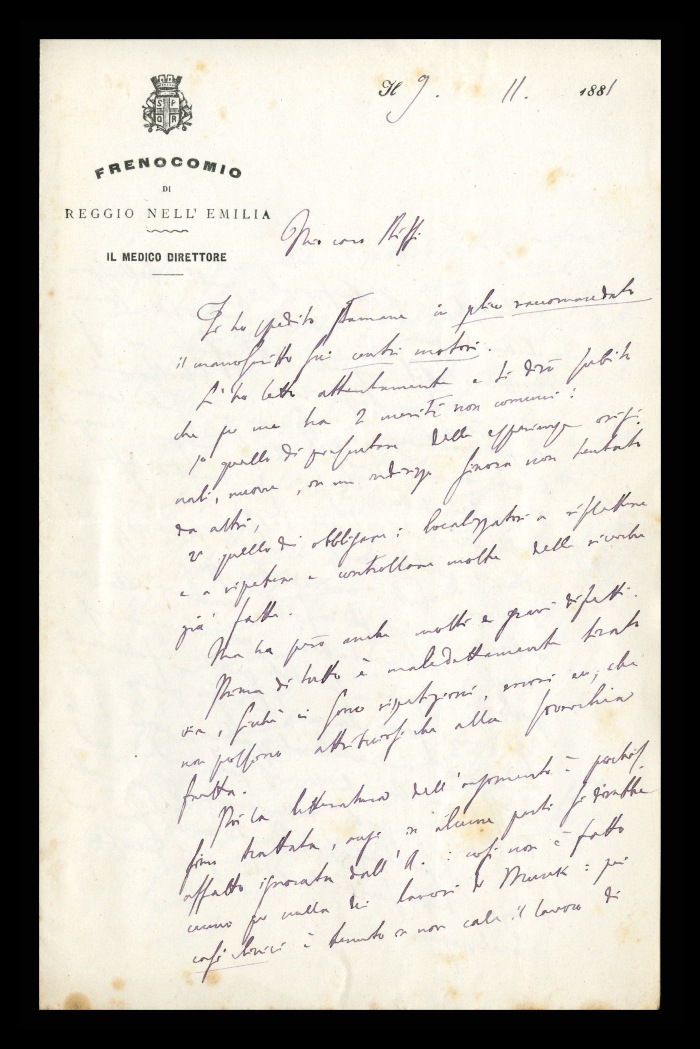 S P
Q R
FRENOCOMIO
DI
REGGIO NELL' EMILIA
IL MEDICO DIRETTORE
Il 9. 11. 1881
Mio caro Biffi
Le ho spedito stamane in plico raccomandato
il manoscritto sui centri motori.
L'ho letto attentamente e ti dirò subito
che per me ha 2 meriti non comuni:
1º quello di presentare delle esperienze origi-
nali, nuove, in un indirizzo finora non tentato
da altri,
2º quello di obbligare i localizzatori a riflettere
e a ripetere e controllare molte delle ricerche
già fatte.
Ma ha però anche molti e gravi difetti.
Prima di tutto è maledettamente tirato
via, sicché vi sono ripetizioni, errori ec, che
non possono attribuirsi che alla soverchia
fretta.
Poi la letteratura dell'argomento è pochis-
simo trattata, anzi in alcune parti si direbbe
affatto ignorata dall'A.: così non è fatto
cenno per nulla dei lavori di Munk: pei
casi clinici è tenuto in non cale il lavoro di